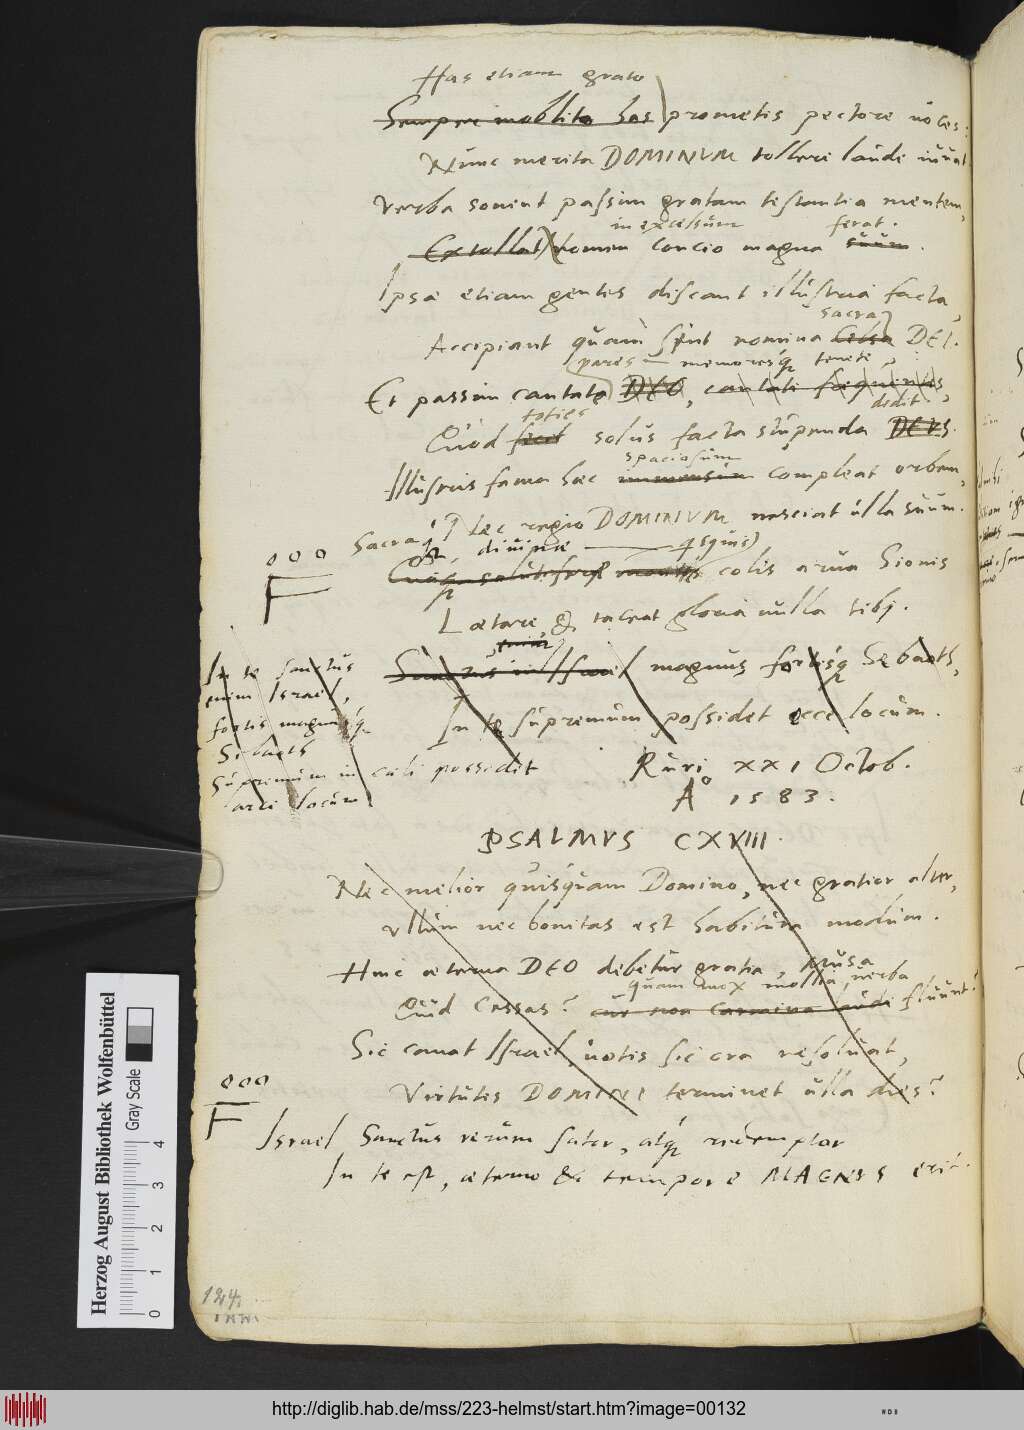 Has etiam grato
Semper mollito has prometis pectore voces:
Nunc merita DOMINVM tollere laude iuuat.
Verba sonent passim gratam testantia mentem,
in excelsum ferat.
Extollat nomen concio magna suum.
Ipsae etiam gentes discant illustria facta,
sacra
Accipiant quam sint nomina Celsa DEI.
pares memoresq tenete
Et passim cantate DEO, cantate frequentes,
toties dedit
Quod fecit solus facta stupenda DEVS.
spaciosum
Illustris fama haec immensum compleat orbem,
Haec regio DOMINVM nesciat ulla suum.
Sacra divinae quisquis
colis arua Sionis
Laetare & taceat gloria nulla tibj.
magnus fortisq Sebaoth,
In te supremum possidet ecce locum.
In te sanctus
enim Israel,
fortis magnusq
Sebaoth
Supremum in caeli possedit
arce locum.
Ruri XXI Octob.
A° 1583.
PSALMVS CXVIII.
Nec melior quisquam Domino, nec gratior alter,
Vllum nec bonitas est habitura modum.
Hinc aeterna DEO debetur gratia, Musa
quam mox mollia verba
Quid Cessas? cur non Carmina laude fluunt?
Sic canat Israel, votis sic ora resoluat,
Virtutes DOMINI terminet ulla dies?
ooo
F
ooo
F
Israel Sanctus rerum sator, atq redemptor
In te est, aeterno & tempore MAGNVS erit.
124
Herzog August Bibliothek Wolfenbüttel
Gray Scale
0 1 2 3 4
http://diglib.hab.de/mss/223-helmst/start.htm?image=00132